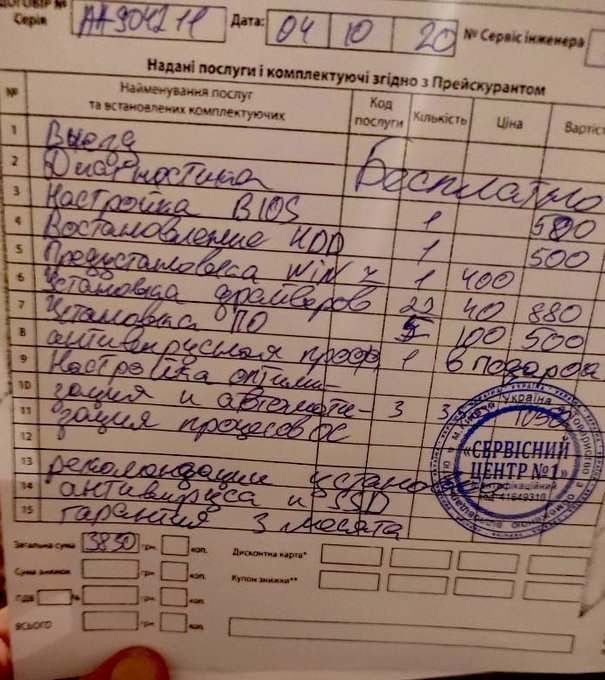 ДОГОВІР №
Серія АА904211 Дата: 04 10 20 № Сервіс інженера
Надані послуги і комплектуючі згідно з Прейскурантом
№ Найменування послуг та встановлених комплектуючих Код послуги Кількість Ціна Вартіс
1 Выезд
2 Диагностика Бесплатно
3 Настройка BIOS 1 580
4 Востановление HDD 1 500
5 Предустановка WIN 7 1 400
6 Установка драйверов 22 40 880
7 Установка ПО 5 100 500
8 антивирусная проф 1 в подарок
9 Настройка оптими-
10 зация и автомати- 3
11 зация процесов ОС
12
13 рекомендации установ
14 антивируса и SSD
15 гарантия 3 месяца
Україна
«СЕРВІСНИЙ
ЦЕНТР №1»
Загальна сума 3830 грн. коп. Дисконтна карта*
Сума знижок грн. коп. Купон знижки**
ПДВ % грн. коп.
ВСЬОГО грн. коп.